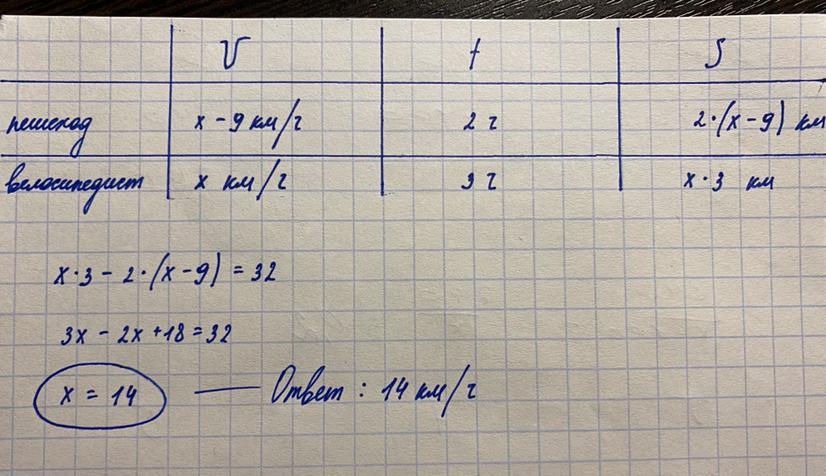 V t S
пешеход x - 9 км/ч 2 ч 2·(x - 9) км
велосипедист x км/ч 3 ч x·3 км
x·3 - 2·(x - 9) = 32
3x - 2x + 18 = 32
x = 14 — Ответ: 14 км/ч